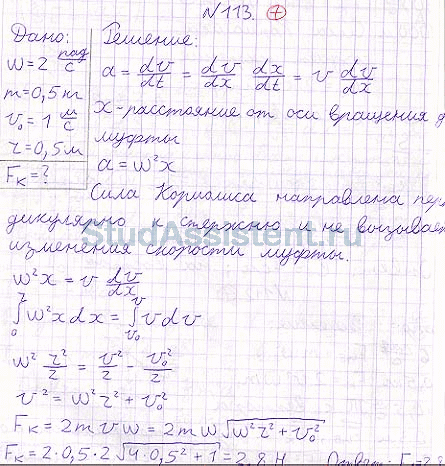 N 113. +
Дано:
ω = 2 рад/с
m = 0,5 кг
v₀ = 1 м/с
r = 0,5 м
Fк = ?
Решение:
a = dv/dt = dv/dx dx/dt = v dv/dx
x - расстояние от оси вращения д
муфты
a = ω²x
Сила Кориолиса направлена пер
дикулярно к стержню и не вызывае
изменения скорости муфты.
StudAssistent.ru
ω²x = v dv/dx
∫₀ʳ ω²x dx = ∫ᵥ₀ᵛ v dv
ω² r²/2 = v²/2 - v₀²/2
v² = ω²r² + v₀²
Fк = 2mvω = 2mω√(ω²r² + v₀²)
Fк = 2·0,5·2√(4·0,5² + 1) = 2,8 Н